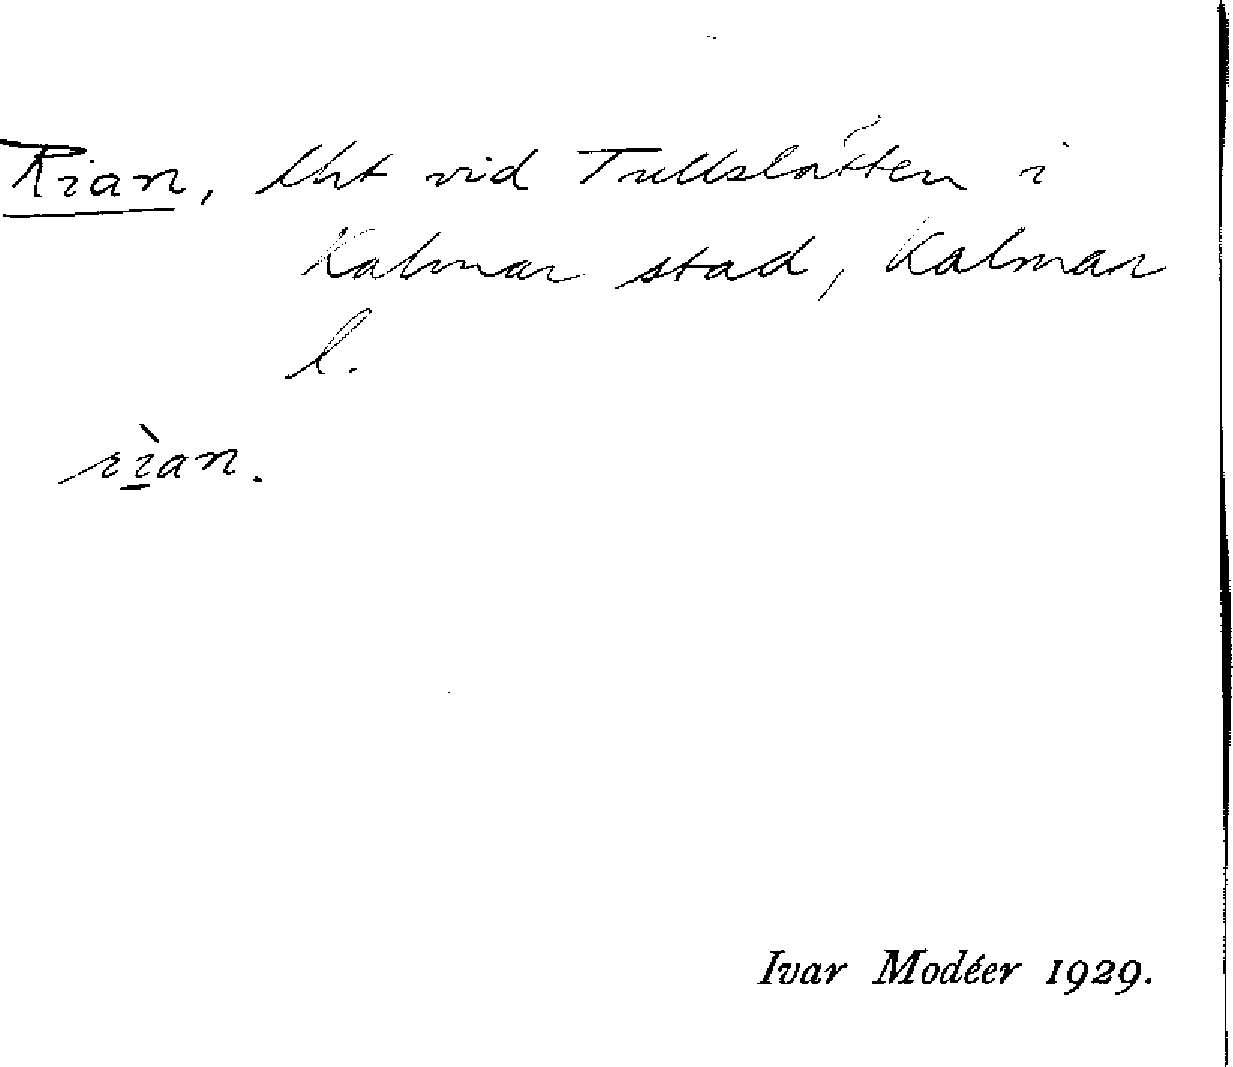 Rian, lht vid Tullslätten i
Kalmar stad, Kalmar
l.
rìan.
Ivar Modéer 1929.